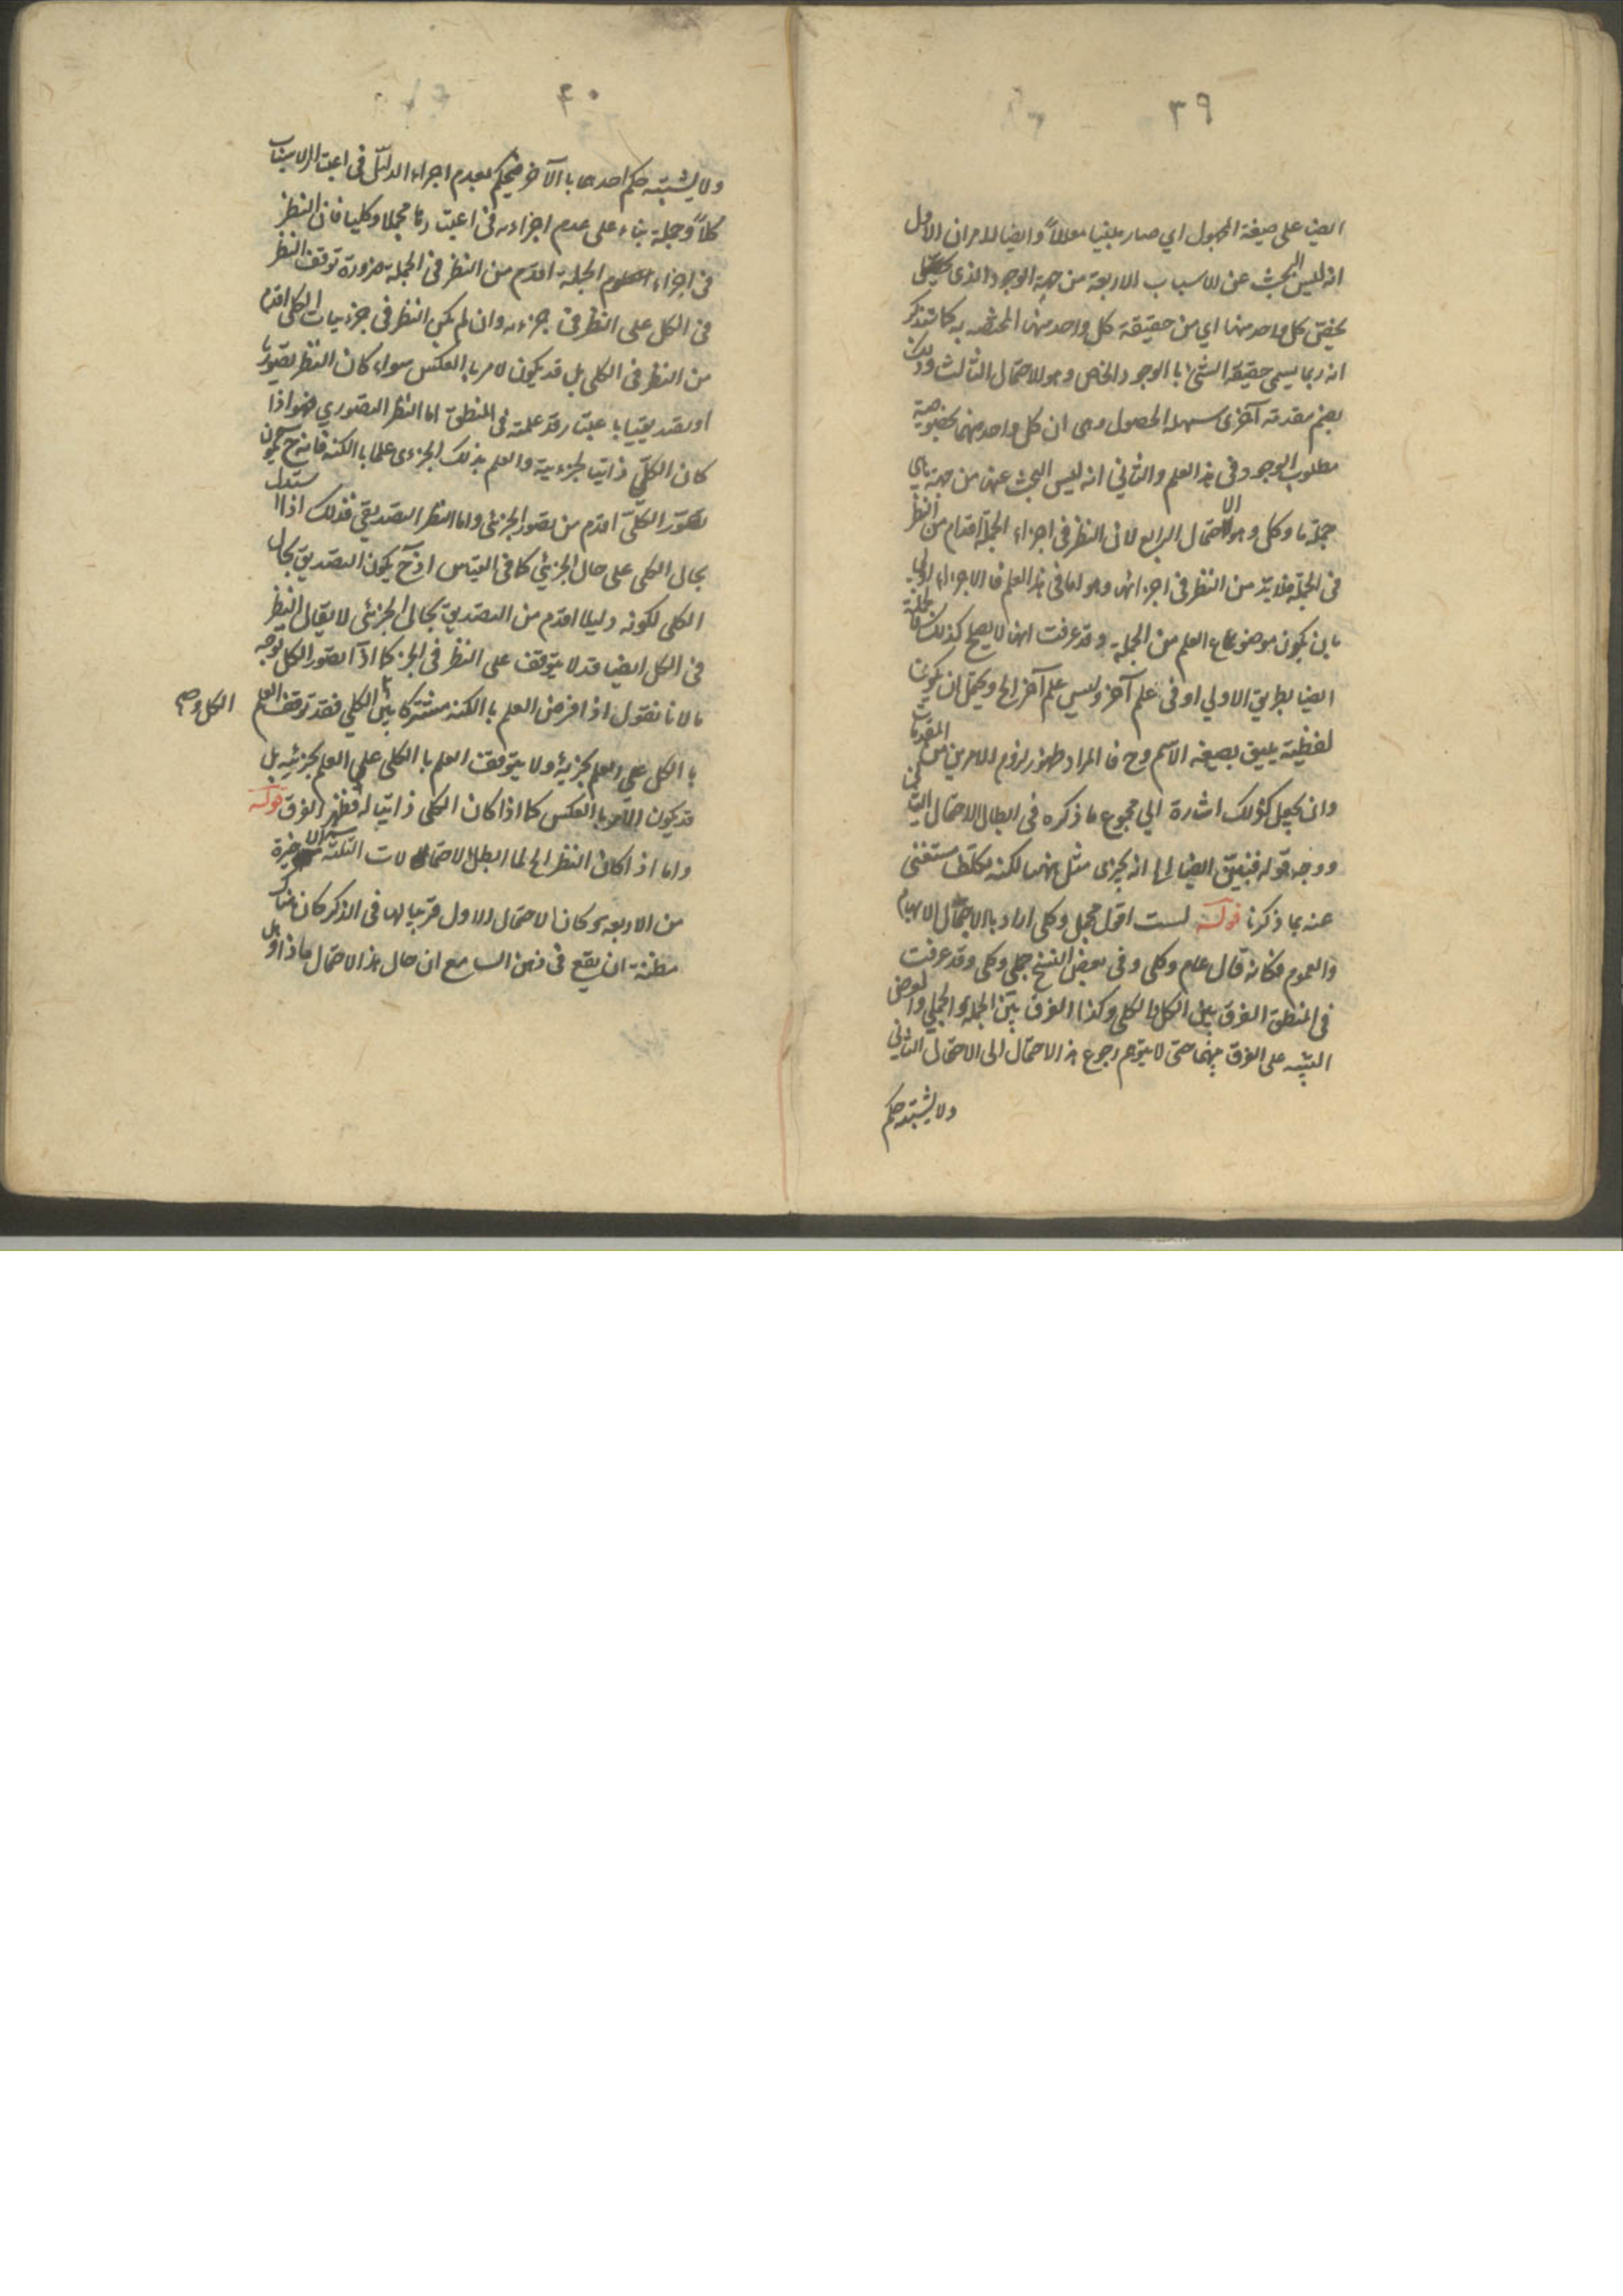 ٣٩
ايضا على صيغة المجهول اي صار مبنيا معللاً وايضا للامران الاول
انه ليس البحث عن الاسباب الاربعة من جهة الوجود الذى
يخص كل واحد منها اي من حقيقة كل واحد منها المختصه به كما ستذكر
انه ربما يسمى حقيقة الشئ باالوجود الخاص وهو الاحتمال الثالث وذلك
بضم مقدمة آخرى سهلة الحصول وهى ان كل واحد منهما بخصوصية
مطلوب الوجود فى هذا العلم والثاني انه ليس البحث عنها من جهة ما هى
جملة ما وكل وهو الاحتمال الرابع لان النظر فى اجزاء الجملة اقدام من النظر
فى الجملة فلا بد من النظر فى اجزائها وهو اما فى هذا العلم فالاجزاء اولى
بان يكون موضوعا ع العلم من الجملة وقد عرفت انها لا يصح كذلك فالجملة
ايضا بطريق الاولي او فى علم آخر وليس علم آخر الخ ويحتمل ان يكون
لفظية يليق بصيغه الاسم وح فاالمراد ظهور لزوم الامرين من المقدمات
وان يجعل كذلك اشارة الي مجموع ما ذكره فى ابطال الاحتمال الثانى
ووجه قوله فنبين ايضا لها انه يجزى مثل لكنه تكلف مستغنى
عنه بما ذكرنا قوله لست اقول مجمل وكلى اراد باالاجمال الابهام
والعموم فكانه قال عام وكلى وفى بعض النسخ جملى وكلى وقد عرفت
فى المنطق الفرق بين الكل والكلى وكذا الفرق بين الجملة والجملي والغرض
التنبيه على الفرق بينهما حتى لا يتوهم رجوع هذا الاحتمال الى الاحتمال الثاني
ولا يشتبه حكم
٤٠
ولا يشتبه حكم احدهما باالآخر فيحكم بعدم اجراء الدليل فى اعتبار الاسباب
كلاً وجملة بناء على عدم اجزاءه فى اعتبارها مجملا وكليا فان النظر
فى اجزاء الجملة اقدم من النظر فى الجملة ضرورة توقف النظر
فى الكل على النظر فى جزءه وان لم يكن النظر فى جزءيات الكلى اقدم
من النظر فى الكلى بل قد يكون الامر باالعكس سواء كان النظر تصوريا
او تصديقيا باعتبار قد علمته فى المنطق اما النظر التصوري فهو اذا
كان الكلّي ذاتيا لجزءيه والعلم بذلك الجزءى علما باالكنه فانه ح يكون
تصوّر الكلّي اقدم من تصور الجزئى واما النظر التصديقي فذلك اذا استدل
بحال الكلى على حال الجزئي كما فى القياس اذ ح يكون التصديق بحال
الكلى لكونه دليلا اقدم من التصديق بحال الجزئى لا يقال النظر
فى الكل ايضا قد لا يتوقف على النظر فى الجزء كما اذا تصور الكل بوجه
ما لانا نقول اذا فرض العلم باالكنه مشتركا بين الكلي فقد توقف العلم
الكل و
باالكل على العلم بجزئه ولا يتوقف العلم باالكلى على العلم بجزئيه بل
قد يكون الامر باالعكس كما اذا كان الكلى ذاتيا له فظهر الفرق قوله
واما اذا كان النظر الخ لما ابطل الاحتمالات الثلثة الاخيرة
من الاربعه وكان الاحتمال الاول قريبا لها فى الذكر كان هناك
مظنة ان يقع فى ذهن السامع ان حال هذا الاحتمال ماذا